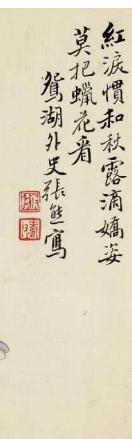 紅淚慣和秋露滴嬌姿
莫把蠟花看
鴛湖外史張熊寫